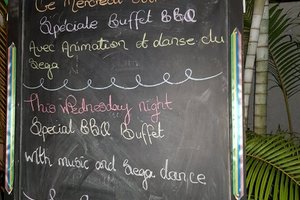 Ce Mercredi
Spéciale Buffet BBQ
Avec Animation et danse du
Sega
This Wednesday night
Special BBQ Buffet
with music and Sega dance